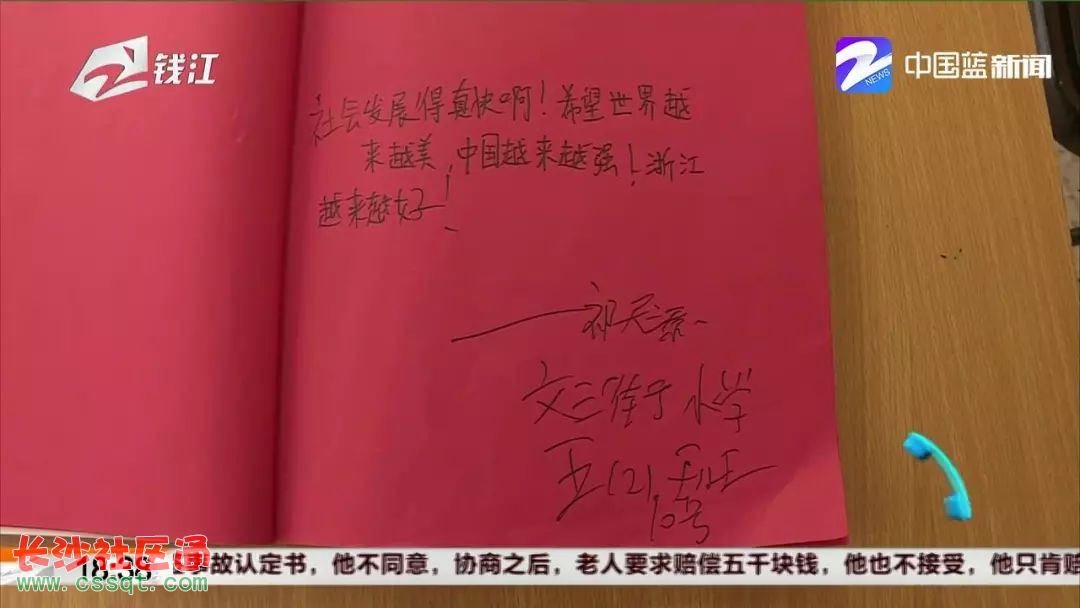 钱江
NEWS
中国蓝新闻
社会发展得真快啊！希望世界越
来越美，中国越来越强！浙江
越来越好！
文三街小学
五(2)班
10号
长沙社区通
18:38
事故认定书，他不同意，协商之后，老人要求赔偿五千块钱，他也不接受，他只肯赔
www.cssqt.com